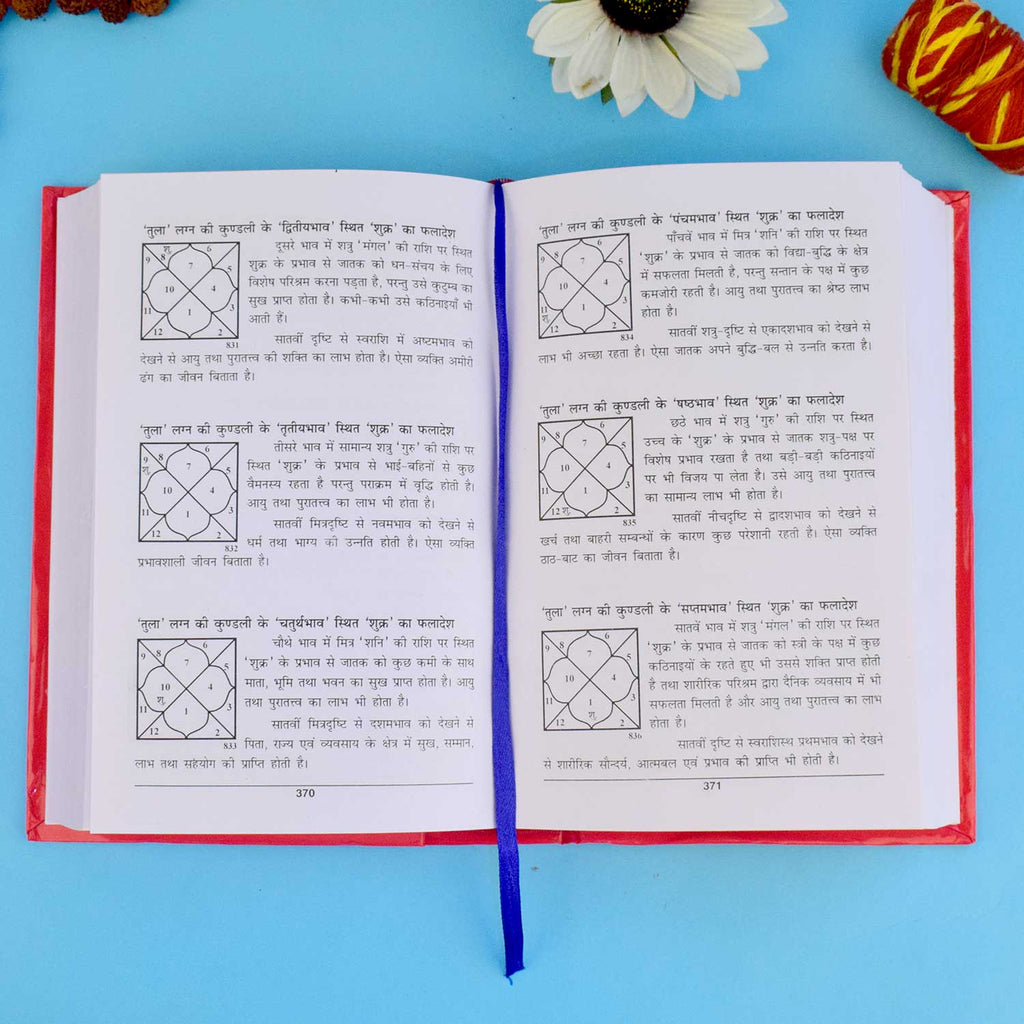 'तुला' लग्न की कुण्डली के 'द्वितीयभाव' स्थित 'शुक्र' का फलादेश
दूसरे भाव में शत्रु 'मंगल' की राशि पर स्थित
शुक्र के प्रभाव से जातक को धन-संचय के लिए
विशेष परिश्रम करना पड़ता है, परन्तु उसे कुटुम्ब का
सुख प्राप्त होता है। कभी-कभी उसे कठिनाइयाँ भी
आती हैं।
9 शु. 8 6 7 5 10 4 11 1 3 12 2
831
सातवीं दृष्टि से स्वराशि में अष्टमभाव को
देखने से आयु तथा पुरातत्त्व की शक्ति का लाभ होता है। ऐसा व्यक्ति अमीरी
ढंग का जीवन बिताता है।
'तुला' लग्न की कुण्डली के 'तृतीयभाव' स्थित 'शुक्र' का फलादेश
तीसरे भाव में सामान्य शत्रु 'गुरु' की राशि पर
स्थित 'शुक्र' के प्रभाव से भाई-बहिनों से कुछ
वैमनस्य रहता है परन्तु पराक्रम में वृद्धि होती है।
आयु तथा पुरातत्त्व का लाभ भी होता है।
9 शु. 8 6 7 5 10 4 11 1 3 12 2
832
सातवीं मित्रदृष्टि से नवमभाव को देखने से
धर्म तथा भाग्य की उन्नति होती है। ऐसा व्यक्ति
प्रभावशाली जीवन बिताता है।
'तुला' लग्न की कुण्डली के 'चतुर्थभाव' स्थित 'शुक्र' का फलादेश
चौथे भाव में मित्र 'शनि' की राशि पर स्थित
'शुक्र' के प्रभाव से जातक को कुछ कमी के साथ
माता, भूमि तथा भवन का सुख प्राप्त होता है। आयु
तथा पुरातत्त्व का लाभ भी होता है।
9 8 6 7 5 10 शु. 4 11 1 3 12 2
833
सातवीं मित्रदृष्टि से दशमभाव को देखने से
पिता, राज्य एवं व्यवसाय के क्षेत्र में सुख, सम्मान,
लाभ तथा सहयोग की प्राप्ति होती है।
370
'तुला' लग्न की कुण्डली के 'पंचमभाव' स्थित 'शुक्र' का फलादेश
पाँचवें भाव में मित्र 'शनि' की राशि पर स्थित
'शुक्र' के प्रभाव से जातक को विद्या-बुद्धि के क्षेत्र
में सफलता मिलती है, परन्तु सन्तान के पक्ष में कुछ
कमजोरी रहती है। आयु तथा पुरातत्त्व का श्रेष्ठ लाभ
होता है।
9 8 6 7 5 10 4 11 शु. 1 3 12 2
834
सातवीं शत्रु-दृष्टि से एकादशभाव को देखने से
लाभ भी अच्छा रहता है। ऐसा जातक अपने बुद्धि-बल से उन्नति करता है।
'तुला' लग्न की कुण्डली के 'षष्ठभाव' स्थित 'शुक्र' का फलादेश
छठे भाव में शत्रु 'गुरु' की राशि पर स्थित
उच्च के 'शुक्र' के प्रभाव से जातक शत्रु-पक्ष पर
विशेष प्रभाव रखता है तथा बड़ी-बड़ी कठिनाइयों
पर भी विजय पा लेता है। उसे आयु तथा पुरातत्त्व
का सामान्य लाभ भी होता है।
9 8 6 7 5 10 4 11 1 3 12 शु. 2
835
सातवीं नीचदृष्टि से द्वादशभाव को देखने से
खर्च तथा बाहरी सम्बन्धों के कारण कुछ परेशानी रहती है। ऐसा व्यक्ति
ठाठ-बाट का जीवन बिताता है।
'तुला' लग्न की कुण्डली के 'सप्तमभाव' स्थित 'शुक्र' का फलादेश
सातवें भाव में शत्रु 'मंगल' की राशि पर स्थित
'शुक्र' के प्रभाव से जातक को स्त्री के पक्ष में कुछ
कठिनाइयों के रहते हुए भी उससे शक्ति प्राप्त होती
है तथा शारीरिक परिश्रम द्वारा दैनिक व्यवसाय में भी
सफलता मिलती है और आयु तथा पुरातत्त्व का लाभ
होता है।
9 8 6 7 5 10 4 11 1 शु. 3 12 2
836
सातवीं दृष्टि से स्वराशिस्थ प्रथमभाव को देखने
से शारीरिक सौन्दर्य, आत्मबल एवं प्रभाव की प्राप्ति भी होती है।
371